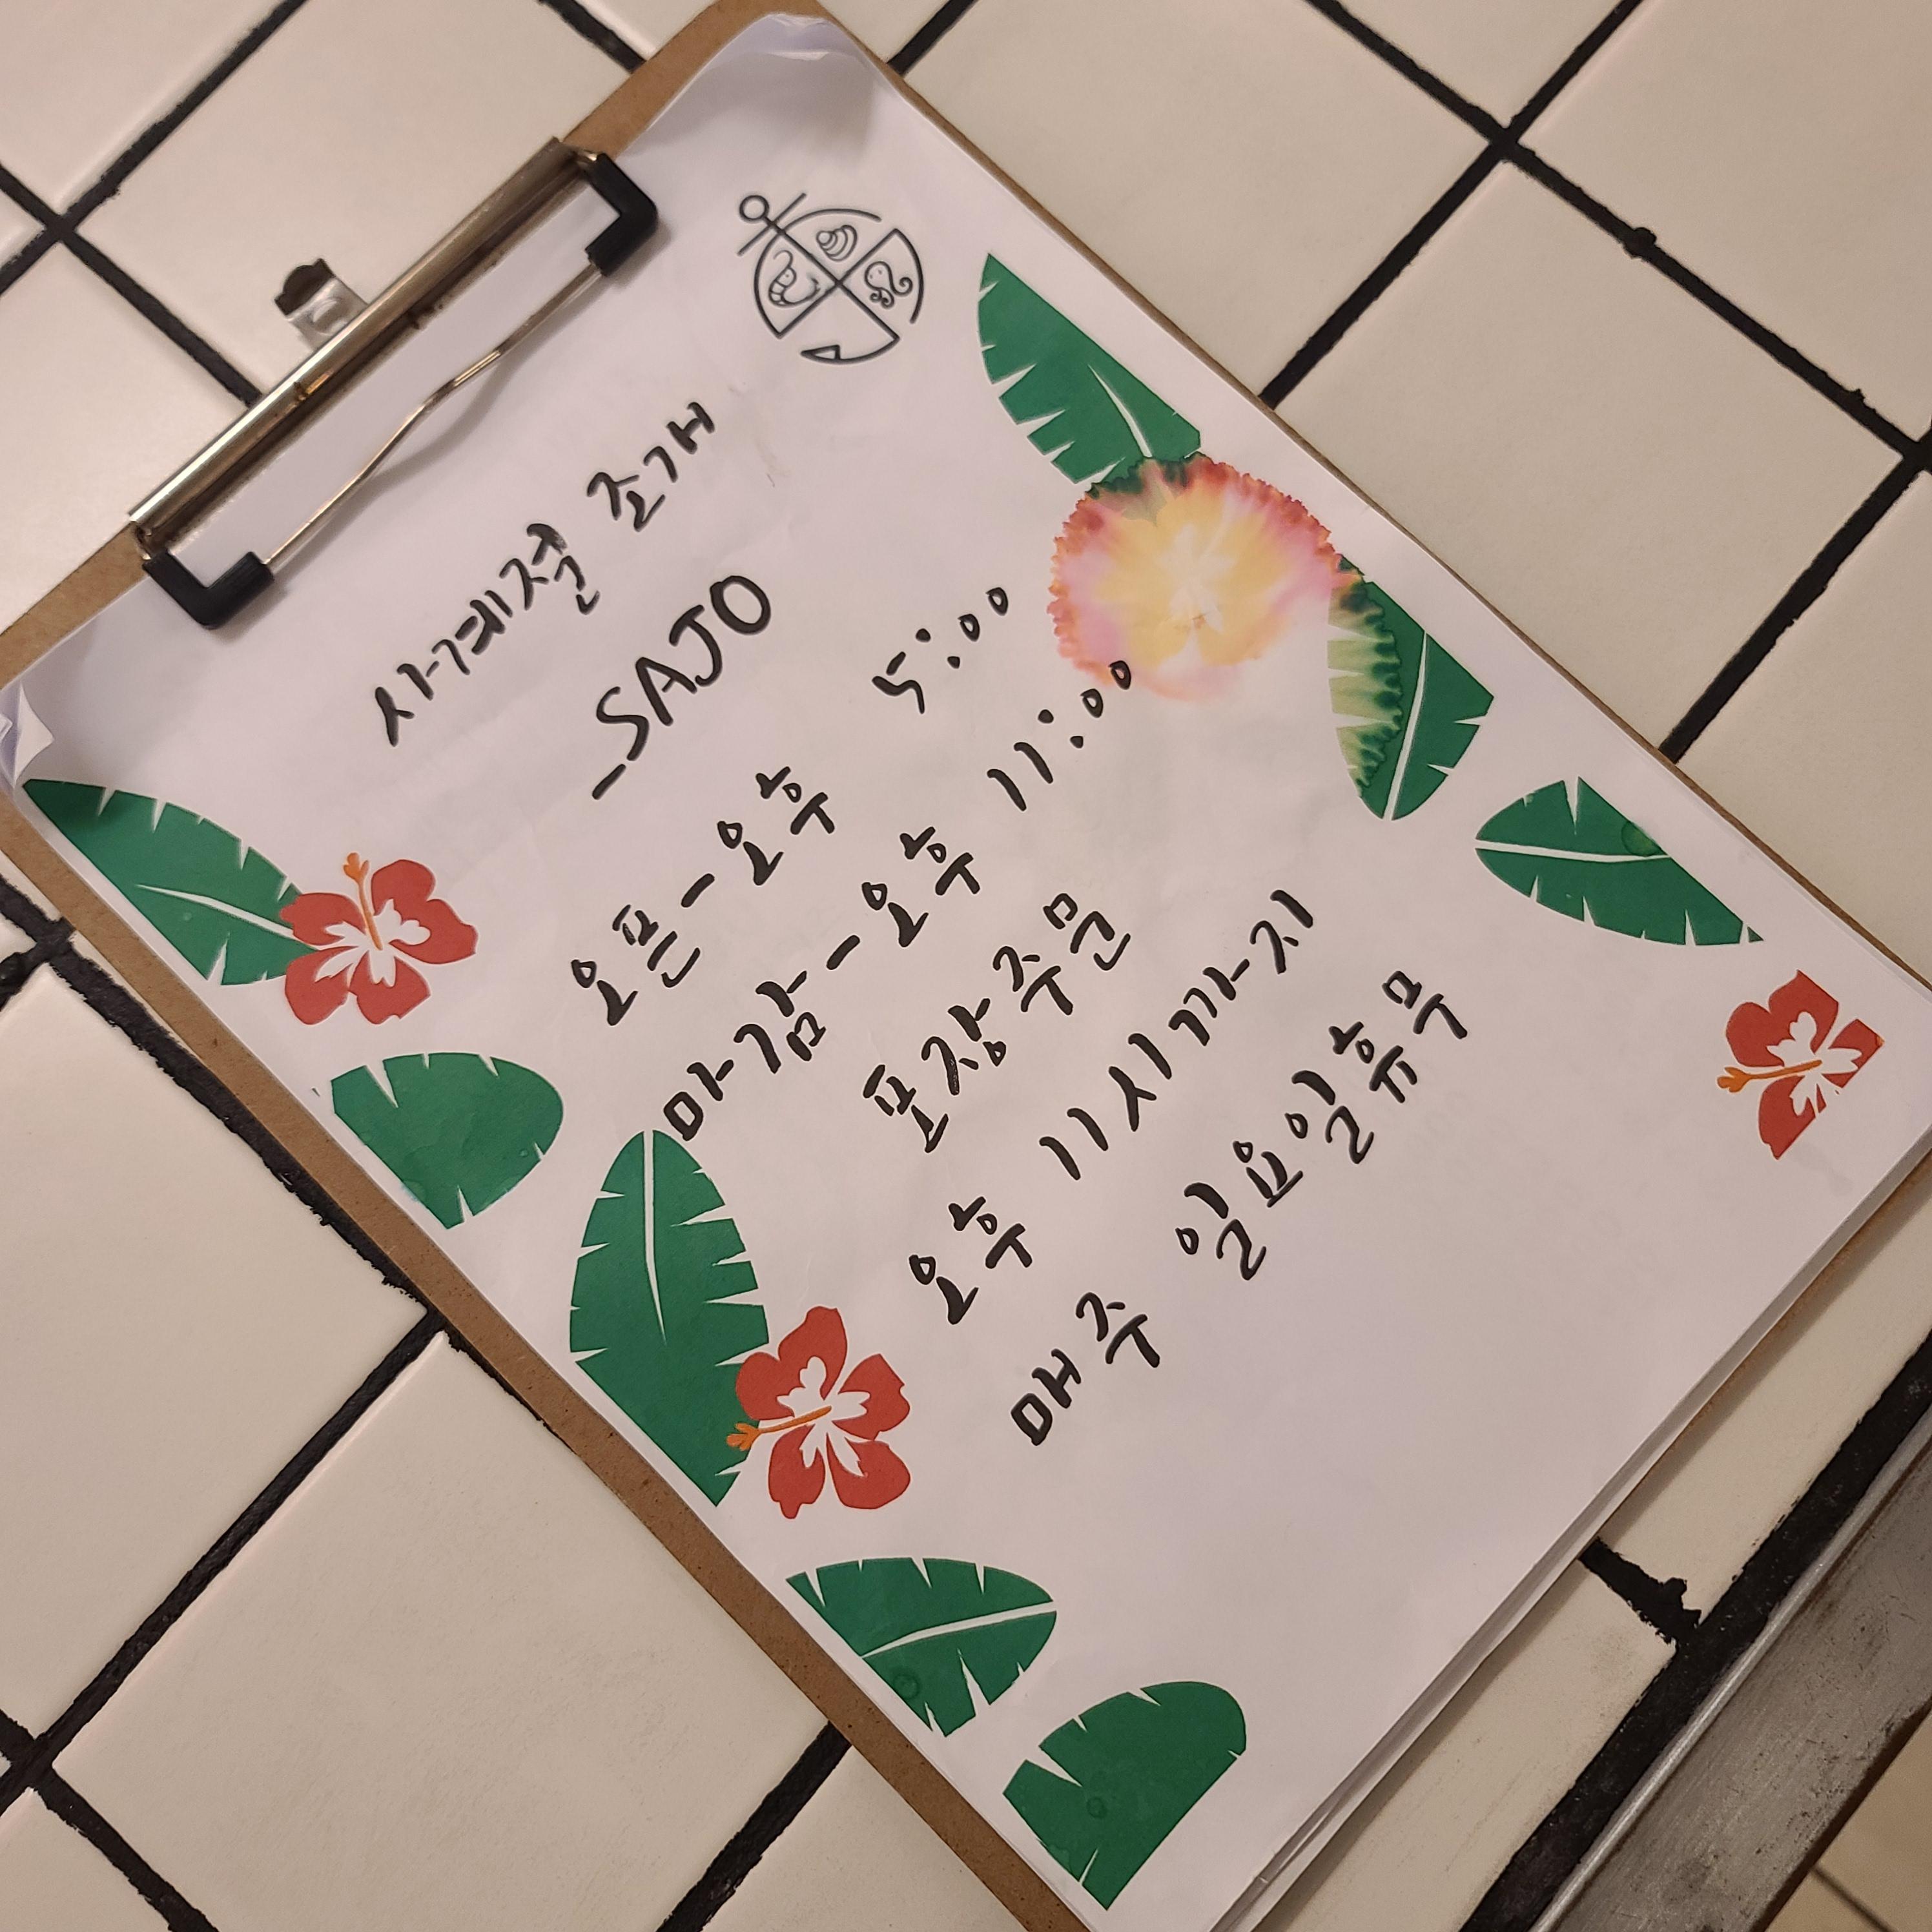 사계절 조개
-SAJO
오픈-오후 5:00
마감-오후 11:00
포장주문
오후 11시까지
매주 일요일휴무